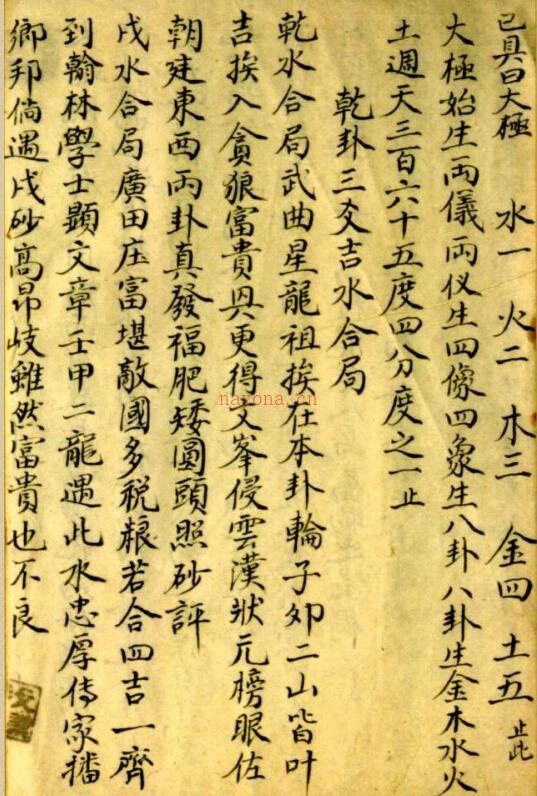 已具曰大極　水一　火二　木三　金四　土五　止此
大極始生両儀両仪生四像四象生八卦八卦生金木水火
土週天三百六十五度四分度之一止
乾卦三爻吉水合局
乾水合局武曲星龍祖挨在本卦輪子夘二山皆叶
吉挨入貪狼富貴具更得文峯侵雲漢狀元榜眼佐
朝廷東西両卦真發福肥矮圓頭照砂評
戌水合局廣田庄富堪敵國多税粮若合四吉一齊
到翰林學士顯文章壬甲二龍遇此水忠厚傳家播
鄉邦倘遇戌砂高昂歧雖然富貴也不良
nazona.cn